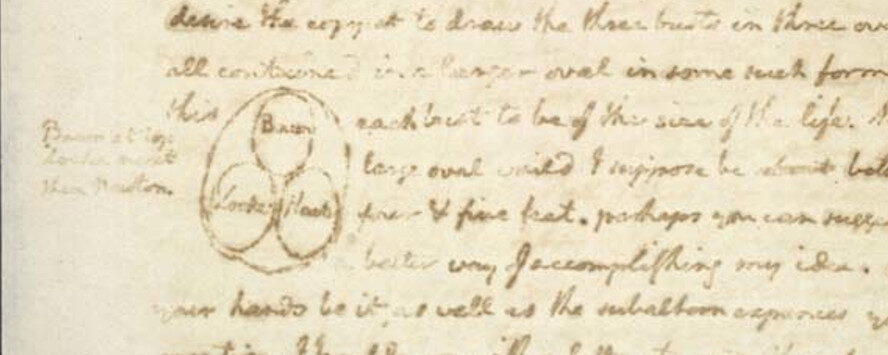 desire the copyist to draw the three busts in three
all contained in a larger oval in some such form
this
each bust to be of the size of the life.
large oval would I suppose be about
four & five feet. perhaps you can
better way of accomplishing my idea.
your hands be it, as well as the subaltern expences
Bacon
Locke
Newt
Bacon at top
Locke next
then Newton.